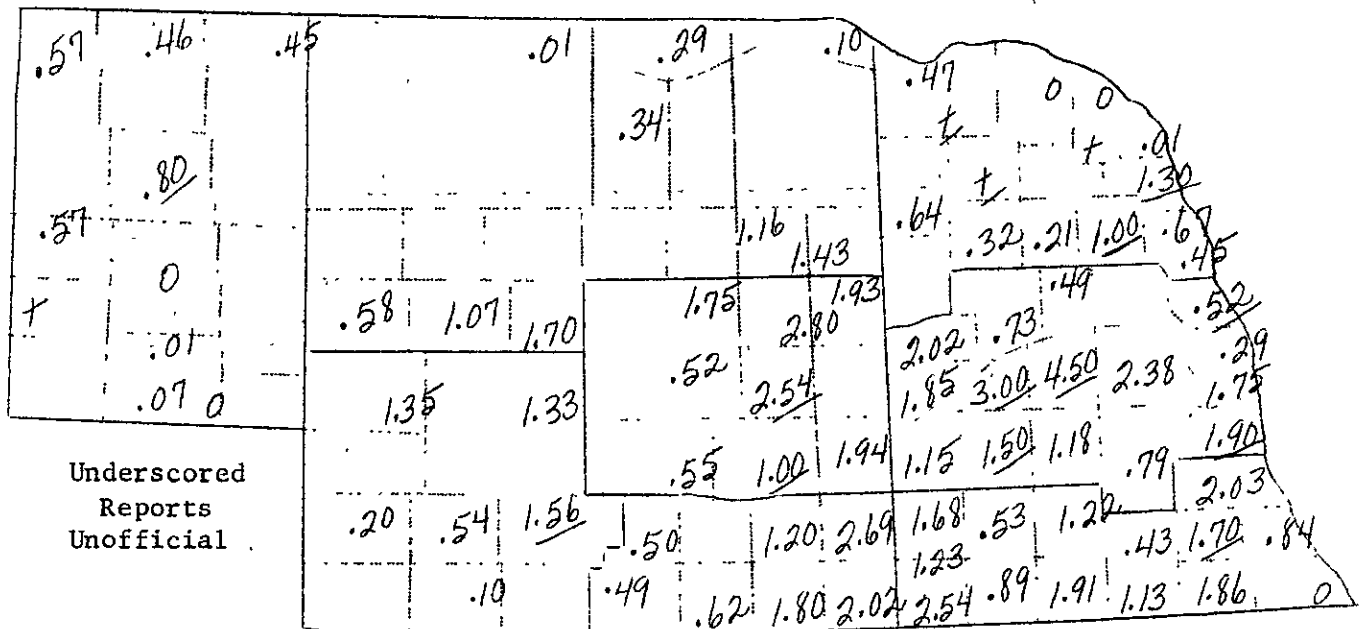 .57 .46 .45 .01 .29 .10
.47
0 0
.34
t
t .01
.80 t 1.30
.57 1.16 .64 .32 .21 1.00 .67
0 1.43 .45
t .58 1.07 1.70 1.75 1.93 .49 .52
.01 2.80 2.02 .73 .29
.52
.07 0 1.35 1.33 2.54 1.85 3.00 4.50 2.38 1.75
.55 1.00 1.94 1.15 1.50 1.18 .79 1.90
Underscored
Reports
Unofficial
2.03
.20 .54 1.56 .50 1.20 2.69 1.68 .53 1.22 .43 1.70 .84
1.23
.10 .49 .62 1.80 2.02 2.54 .89 1.91 1.13 1.86 0